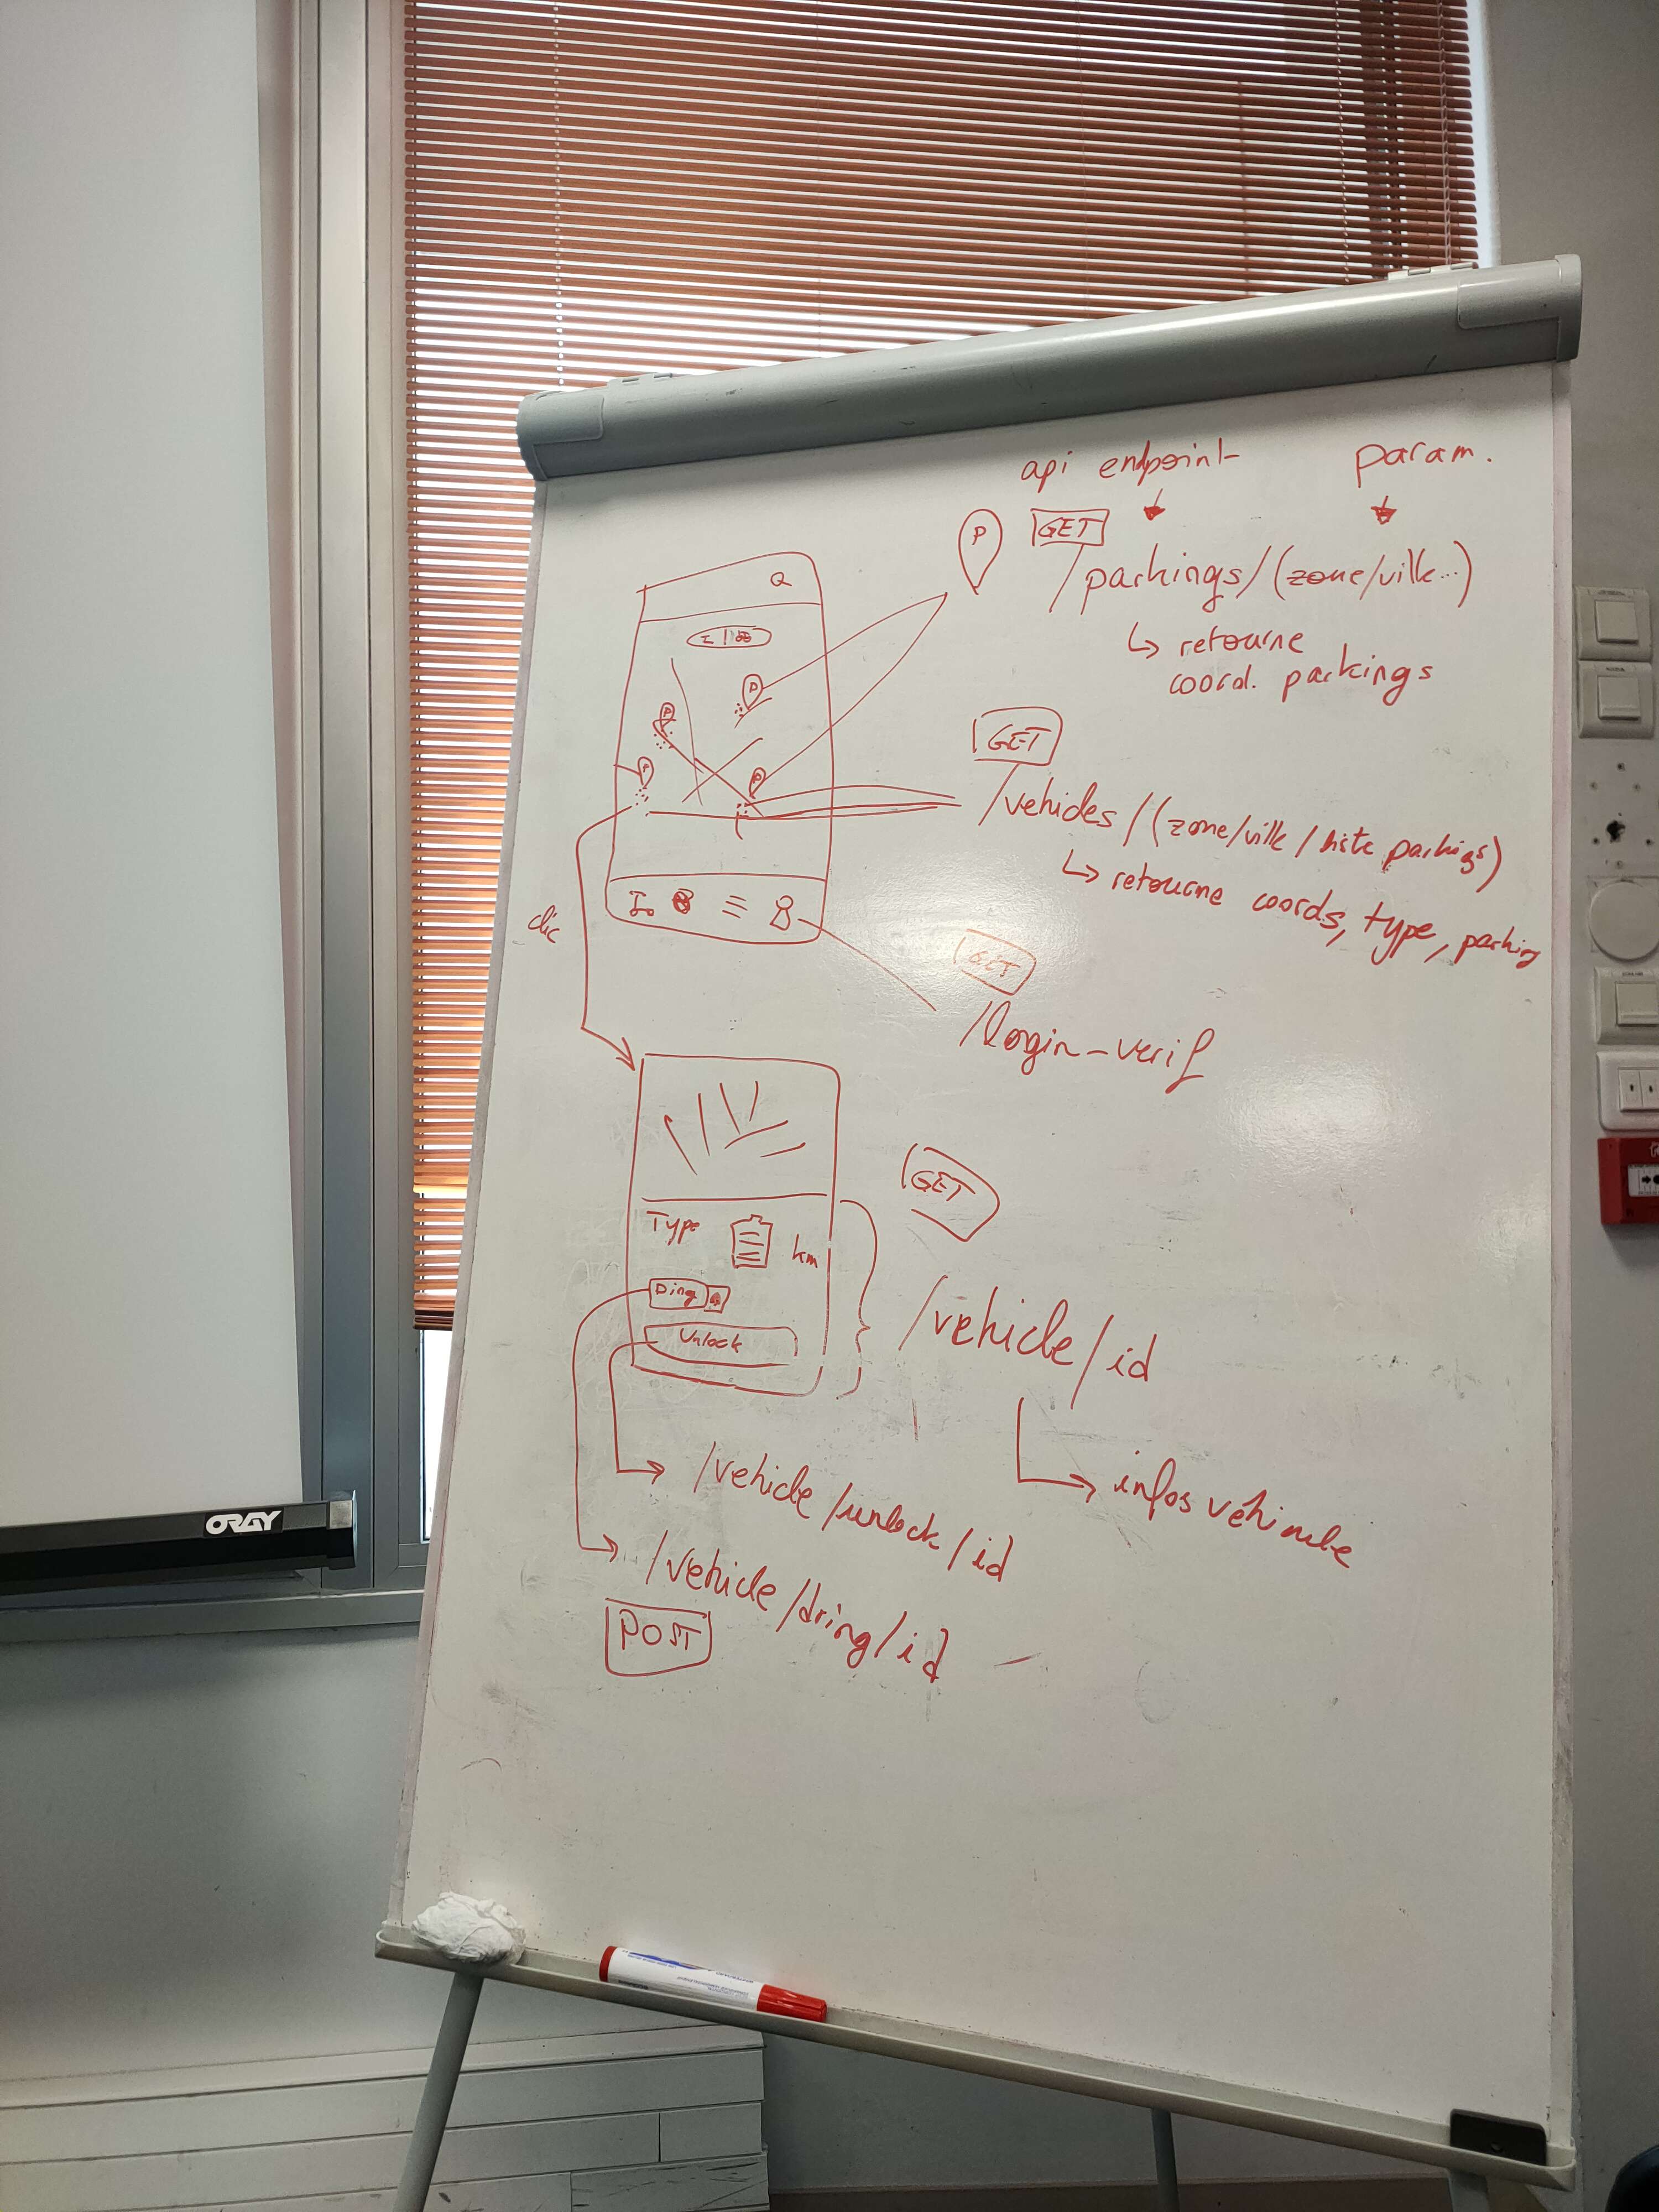 api endpoint
param.
P
GET
/parkings/(zone/ville...)
↳ retourne
coord. parkings
P
P
P
P
GET
/vehicles/(zone/ville/liste parkings)
↳ retourne coords, type, parking
clic
GET
/login-verif
GET
Type
km
Ding
Unlock
/vehicle/id
infos véhicule
/vehicle/unlock/id
/vehicle/dring/id
POST
ORAY